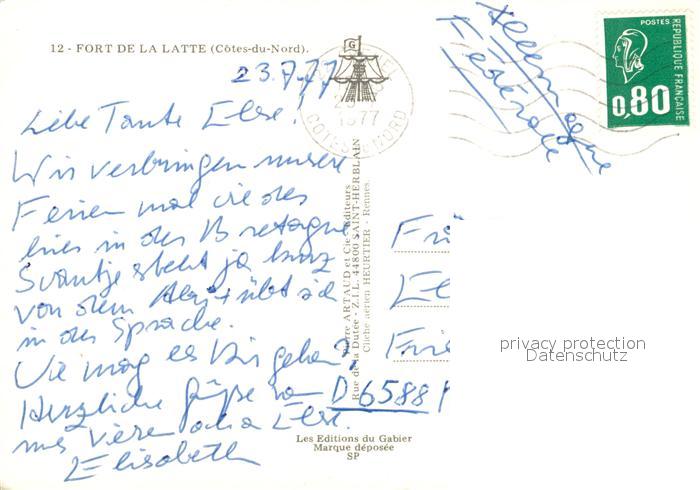 12 - FORT DE LA LATTE (Côtes-du-Nord).
23.7.77
Liebe Tante Else!
Wir verbringen unsere
Ferien mal wieder
hier in der Bretagne
Svantje steht ja kurz
von dem Abi + übt sich
in der Sprache.
Wie mag es Dir gehen?
Herzliche Grüße von
uns Vieren deine Else.
Elisabeth
G
1977
COTES DU NORD
Allemagne
Fédérale
POSTES
REPUBLIQUE FRANÇAISE
0,80
ARTAUD et Cie - Editeurs
Rue de la Dutée - Z.I.L. 44800 SAINT-HERBLAIN
Cliché aérien HEURTIER - Rennes
Frü
El
Frie
D 6588
privacy protection
Datenschutz
Les Editions du Gabier
Marque déposée
SP